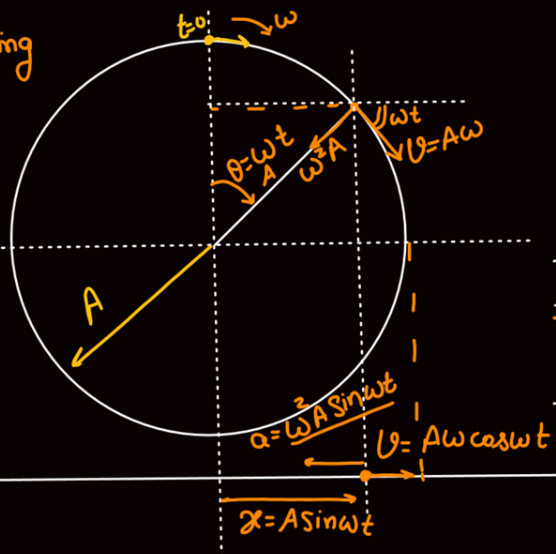 ing
t=0
ω
ωt
θ=ωt
A
ω²A
v=Aω
A
a=ω²A Sinωt
v= Aω cosωt
x=A sinωt